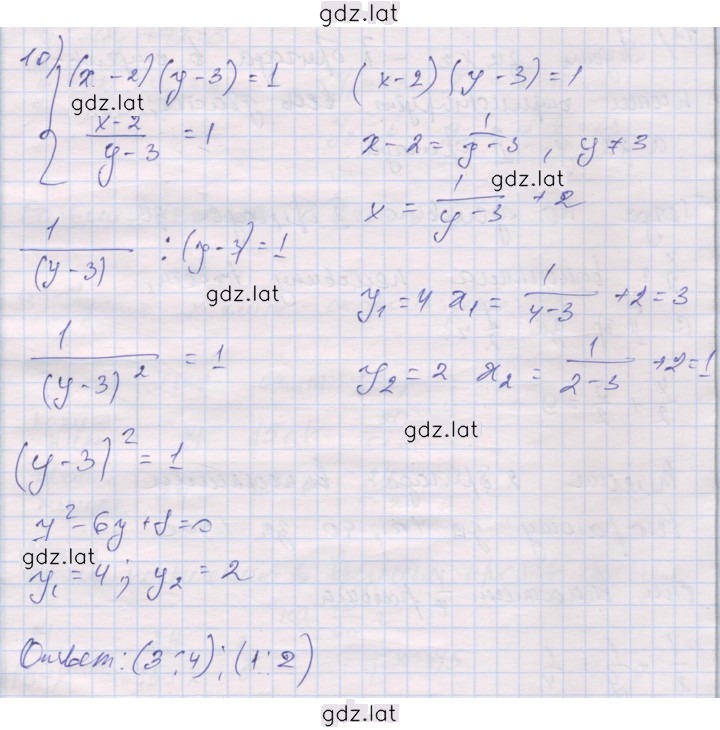 gdz.lat
10) { (x - 2)(y - 3) = 1
gdz.lat
x - 2 / y - 3 = 1
(x - 2)(y - 3) = 1
x - 2 = 1 / y - 3 , y ≠ 3
gdz.lat
x = 1 / y - 3 + 2
1 / (y - 3) : (y - 3) = 1
gdz.lat
1 / (y - 3)² = 1
y₁ = 4 x₁ = 1 / 4 - 3 + 2 = 3
y₂ = 2 x₂ = 1 / 2 - 3 + 2 = 1
gdz.lat
(y - 3)² = 1
y² - 6y + 8 = 0
gdz.lat
y₁ = 4 ; y₂ = 2
Ответ: (3 ; 4) ; (1 ; 2)
gdz.lat